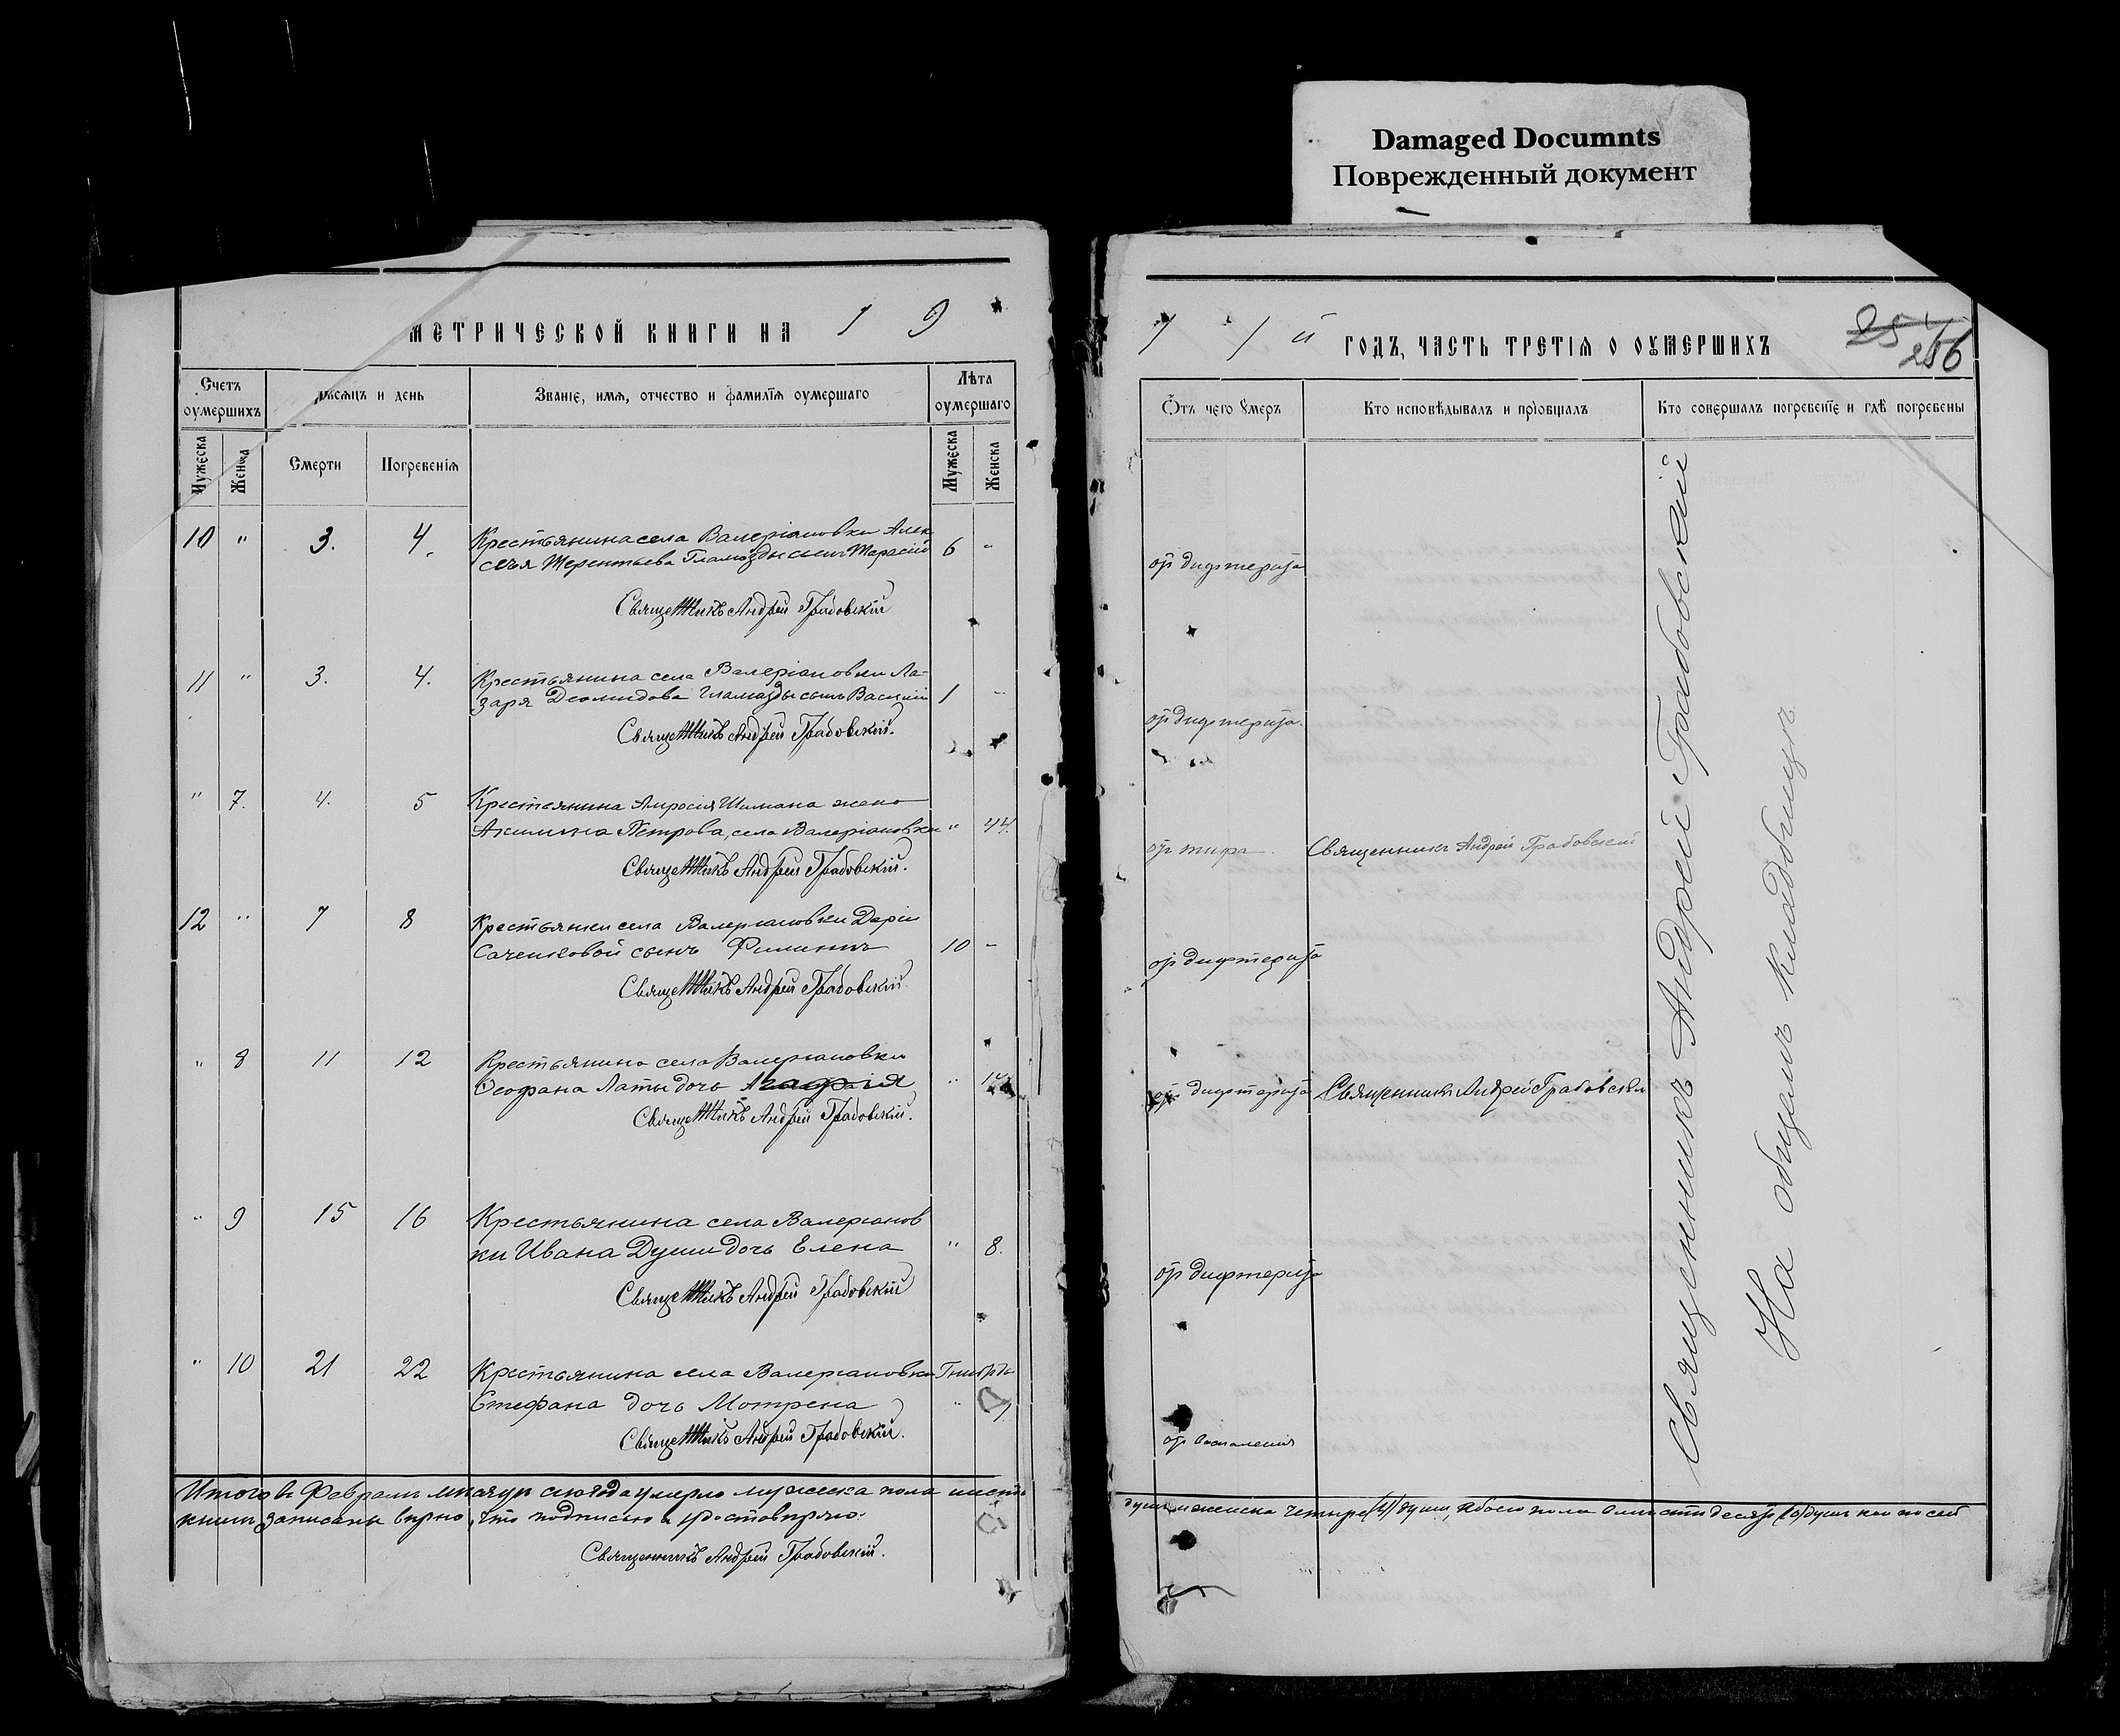 Damaged Documnts
Поврежденный документ
МЕТРИЧЕСКОЙ КНИГИ НА 19
Счетъ оумершихъ
Мѣсяцъ и день
Званіе, имя, отчество и фамилія оумершаго
Лѣта оумершаго
Мужеска
Женска
Смерти
Погребенія
Мужеска
Женска
10 " 3. 4. Крестьянина села Валеріановки Алек
сѣя Терентьева Гламазды сынъ Тарасій 6 "
Священникъ Андрей Грабовскій
11 " 3. 4. Крестьянина села Валеріановки Ла-
заря Деомидова Гламазды сынъ Василій 1 "
Священникъ Андрей Грабовскій.
" 7. 4. 5 Крестьянина Шимана жена
Акилина Петрова, села Валеріановки " 44.
Священникъ Андрей Грабовскій.
12 " 7 8 Крестьянки села Валеріановки Даріи
сынъ Филиппъ 10 "
Священникъ Андрей Грабовскій
" 8 11 12 Крестьянина села Валеріановки
Ѳеофана Латы дочь Агафія "
Священникъ Андрей Грабовскій.
" 9 15 16 Крестьянина села Валеріанов
ки Ивана Души дочь Елена " 8.
Священникъ Андрей Грабовскій
" 10 21 22 Крестьянина села Валеріановки
Стефана дочь Мотрена "
Священникъ Андрей Грабовскій.
Итого въ Февралѣ мѣсяцѣ сего года умерло мужеска пола шесть
книгѣ записаны вѣрно, что подписью и удостовѣряю.
Священникъ Андрей Грабовскій.
1 й ГОДЪ, ЧАСТЬ ТРЕТІЯ О ОУМЕРШИХЪ
256
Отъ чего умеръ
Кто исповѣдывалъ и пріобщалъ
Кто совершалъ погребеніе и гдѣ погребены
отъ дифтерита
отъ дифтерита.
отъ тифа. Священникъ Андрей Грабовскій
отъ дифтерита
отъ дифтерита Священникъ Андрей Грабовскій
отъ дифтерита
отъ воспаленія
Священникъ Андрей Грабовскій
На общемъ кладбищѣ
душъ, женска четыре (4) души, обоего пола десять (10) душъ по сей